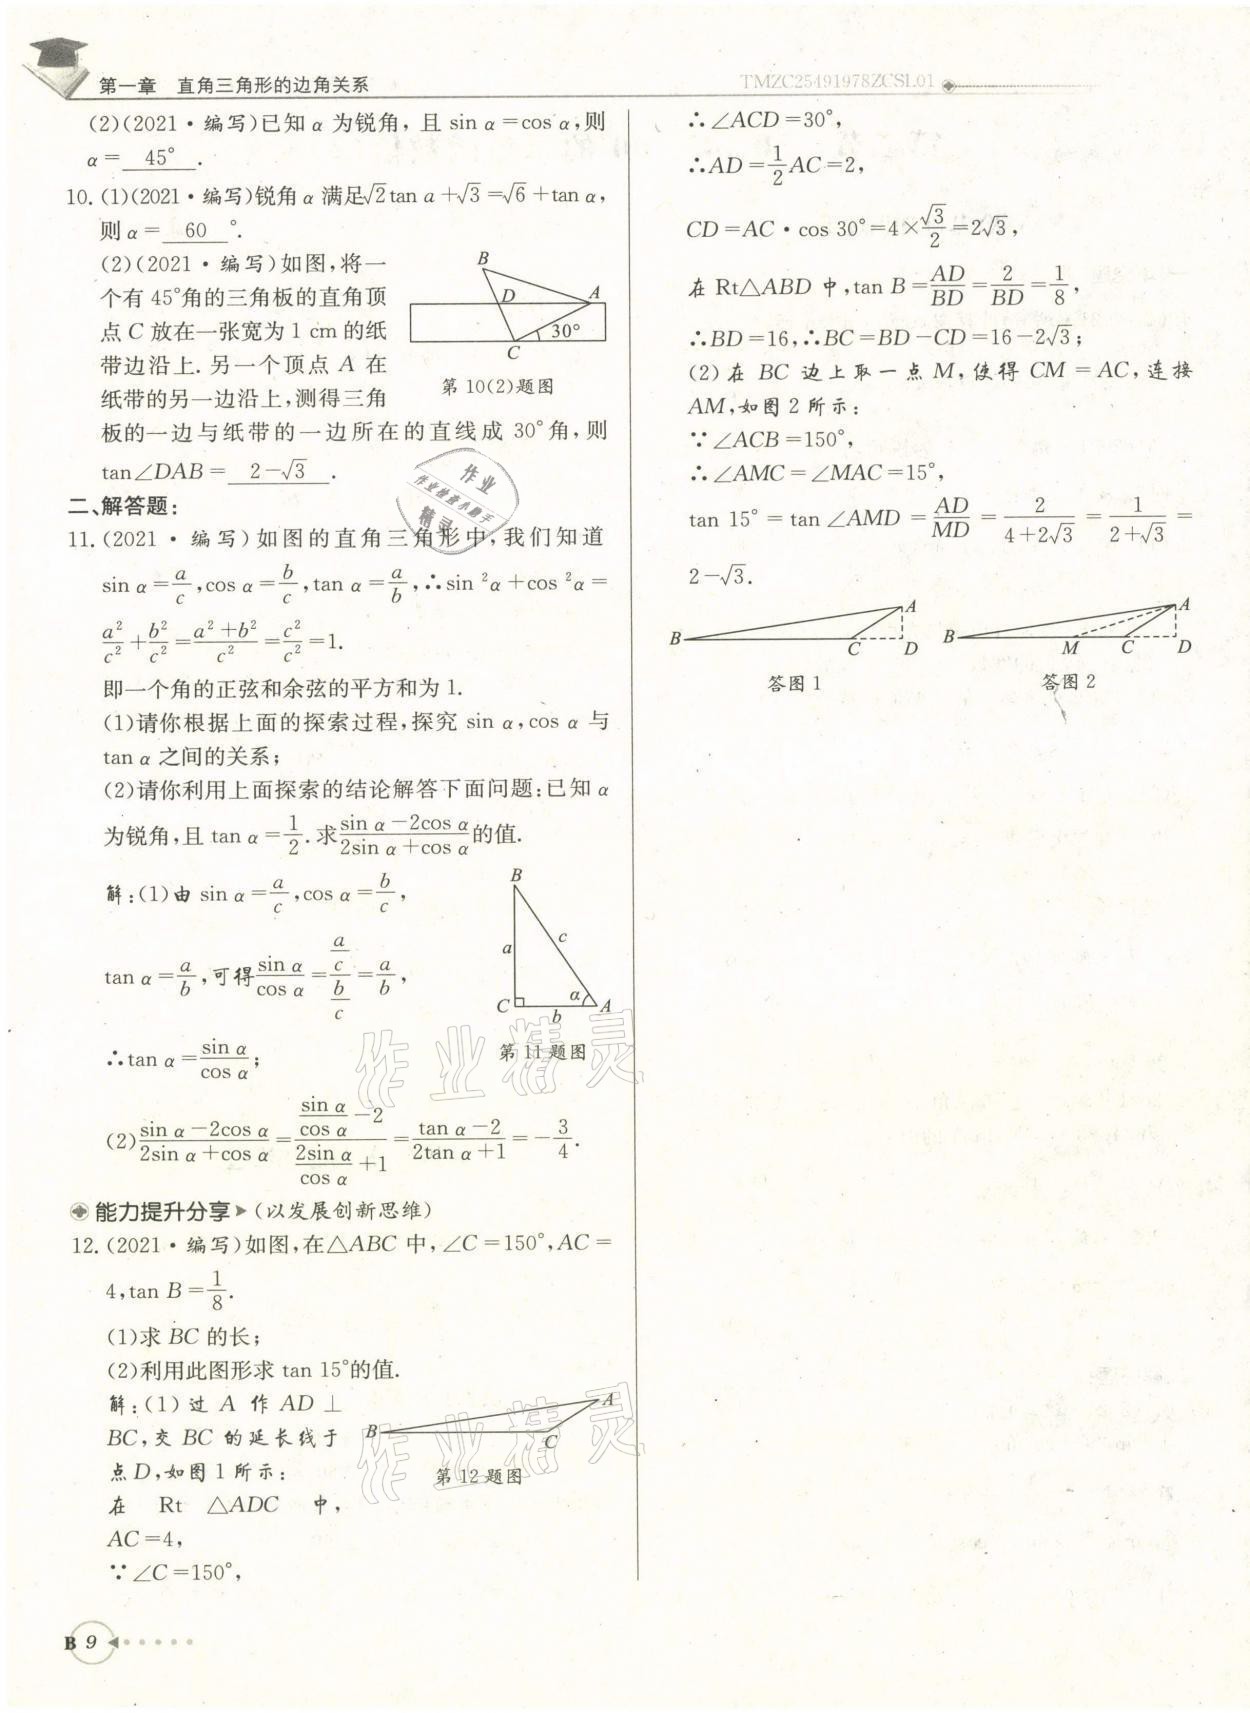 第一章　直角三角形的边角关系
TMZC25491978ZCSL01
(2)(2021·编写)已知 α 为锐角，且 sin α=cos α,则
α= 45° .
10. (1)(2021·编写)锐角 α 满足√2tan α+√3=√6+tan α,
则 α= 60 °.
(2)(2021·编写)如图,将一
个有 45°角的三角板的直角顶
点 C 放在一张宽为 1 cm 的纸
带边沿上. 另一个顶点 A 在
纸带的另一边沿上,测得三角
板的一边与纸带的一边所在的直线成 30°角,则
tan∠DAB= 2-√3 .
B
D
A
30°
C
第 10(2)题图
二、解答题:
11. (2021·编写)如图的直角三角形中,我们知道
sin α=a/c,cos α=b/c,tan α=a/b,∴sin²α+cos²α=
a²/c²+b²/c²=(a²+b²)/c²=c²/c²=1.
即一个角的正弦和余弦的平方和为 1.
(1)请你根据上面的探索过程,探究 sin α,cos α 与
tan α 之间的关系;
(2)请你利用上面探索的结论解答下面问题:已知 α
为锐角,且 tan α=1/2. 求(sin α-2cos α)/(2sin α+cos α)的值.
解:(1)由 sin α=a/c,cos α=b/c,
tan α=a/b,可得 sin α/cos α=(a/c)/(b/c)=a/b,
∴tan α=sin α/cos α;
B
a
c
C
b
α
A
第 11 题图
(2)(sin α-2cos α)/(2sin α+cos α)=(sin α/cos α-2)/(2sin α/cos α+1)=(tan α-2)/(2tan α+1)=-3/4.
能力提升分享 (以发展创新思维)
12. (2021·编写)如图,在△ABC 中,∠C=150°,AC=
4,tan B=1/8.
(1)求 BC 的长;
(2)利用此图形求 tan 15°的值.
解:(1)过 A 作 AD ⊥
BC,交 BC 的延长线于
点 D,如图 1 所示:
在 Rt △ADC 中,
AC=4,
∵∠C=150°,
A
B
C
第 12 题图
B 9
∴∠ACD=30°,
∴AD=1/2AC=2,
CD=AC·cos 30°=4×√3/2=2√3,
在 Rt△ABD 中,tan B=AD/BD=2/BD=1/8,
∴BD=16,∴BC=BD-CD=16-2√3;
(2)在 BC 边上取一点 M,使得 CM=AC,连接
AM,如图 2 所示:
∵∠ACB=150°,
∴∠AMC=∠MAC=15°,
tan 15°=tan ∠AMD=AD/MD=2/(4+2√3)=1/(2+√3)=
2-√3.
A
B
C
D
答图 1
A
B
M
C
D
答图 2
作业
作业检查小助手
精灵
作业精灵
作业精灵